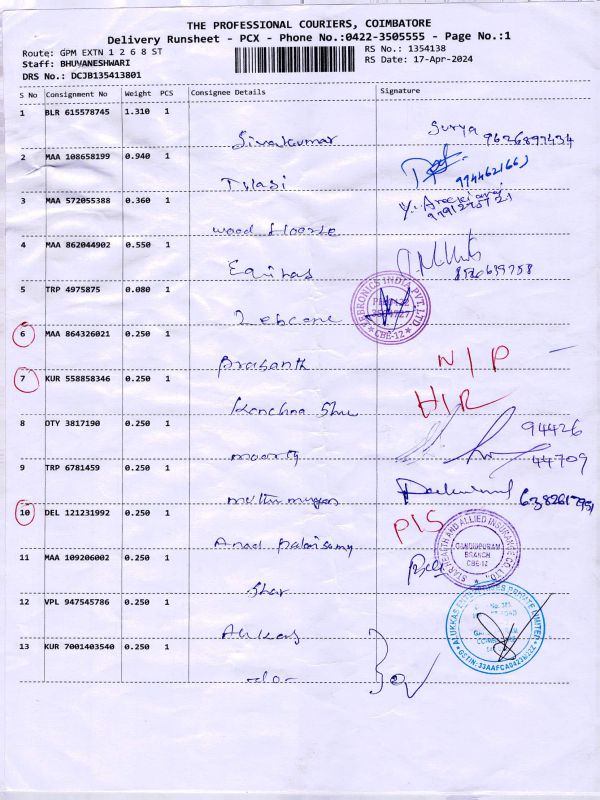 THE PROFESSIONAL COURIERS, COIMBATORE
Delivery Runsheet - PCX - Phone No.:0422-3505555 - Page No.:1
Route: GPM EXTN 1 2 6 8 ST
RS No.: 1354138
Staff: BHUVANESHWARI
RS Date: 17-Apr-2024
DRS No.: DCJB135413801
S No Consignment No Weight PCS Consignee Details Signature
1 BLR 615578745 1.310 1
Sivakumar Surya 9626897434
2 MAA 108658199 0.940 1
Tulasi
3 MAA 572055388 0.360 1
wood House
4 MAA 862044902 0.550 1
Equitas
5 TRP 4975875 0.080 1
Zebcone
EBBRONICS INDIA PVT. LTD
CBE-12
6 MAA 864326021 0.250 1
Prasanth N/P
7 KUR 558858346 0.250 1
Kanchna Shre H/R
8 OTY 3817190 0.250 1
moorty 94426
44709
9 TRP 6781459 0.250 1
muthu murugan
10 DEL 121231992 0.250 1
Anad Palanisamy P/S
STAR HEALTH AND ALLIED INSURANCE CO. LTD.
GANDHIPURAM
BRANCH
CBE-12
11 MAA 109206002 0.250 1
Star
12 VPL 947545786 0.250 1
Alukas
13 KUR 7001403540 0.250 1
-do-